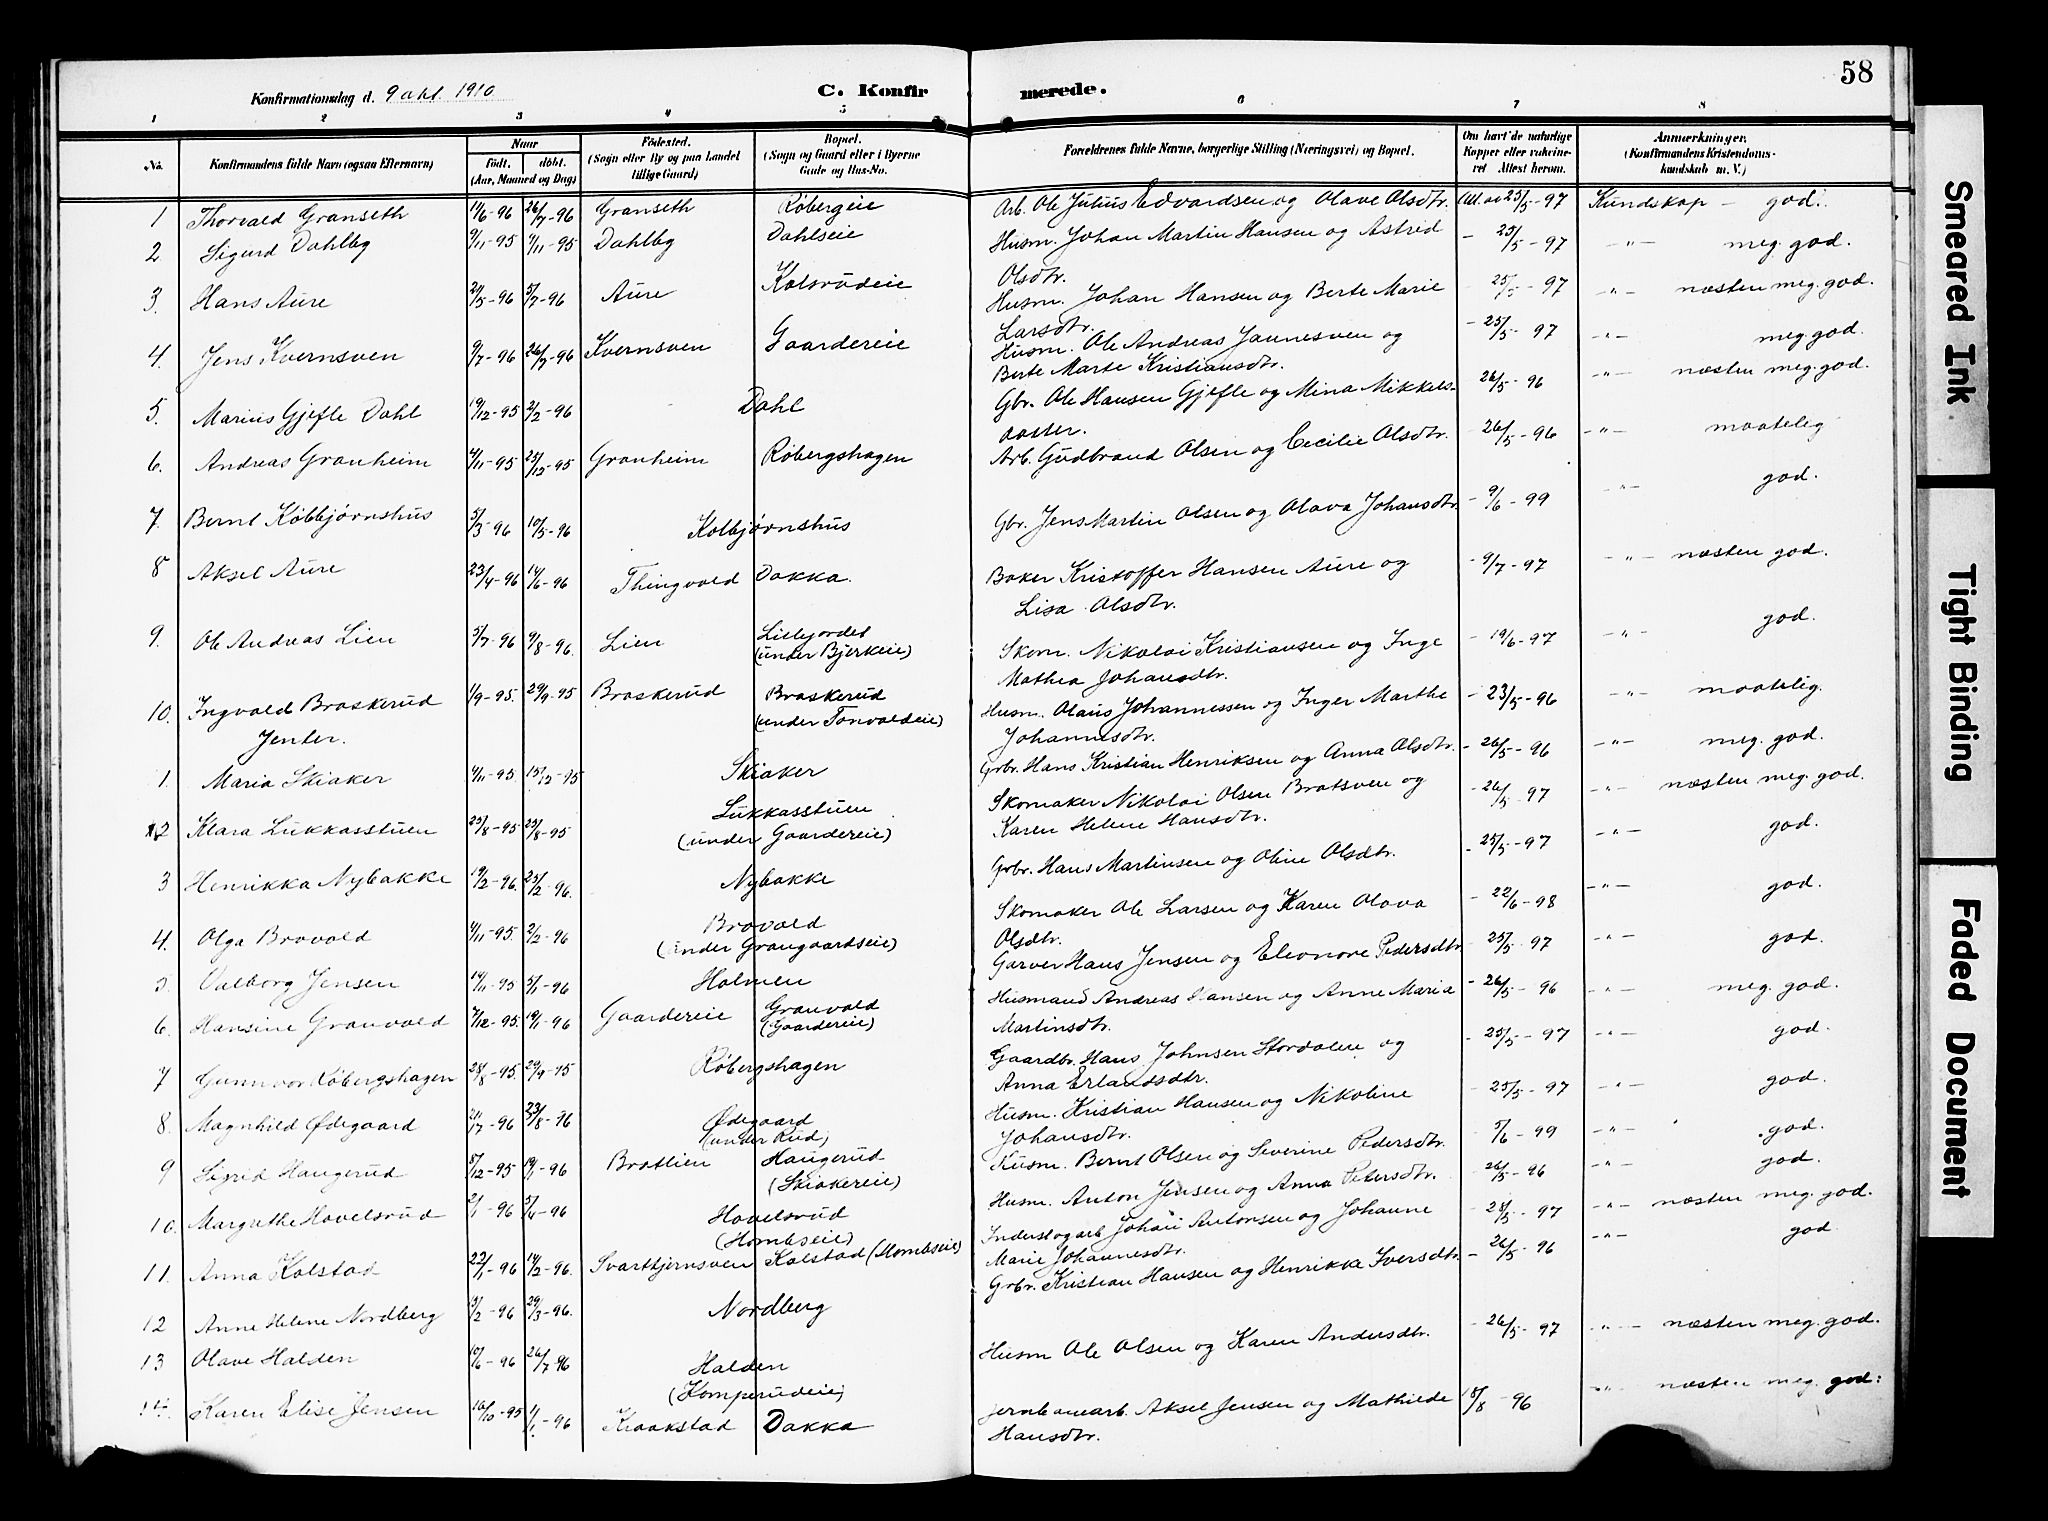 58
Konfirmationsdag d. 9 okt. 1910
C. Konfirmerede.
1 2 3 4 5 6 7 8
No.
Konfirmandens fulde Navn (ogsaa Efternavn)
Naar
født. døbt.
(Aar, Maaned og Dag)
Fødested.
(Sogn eller By og paa Landet
tillige Gaard)
Bopæl.
(Sogn og Gaard eller i Byerne
Gade og Hus-No.
Forældrenes fulde Navne, borgerlige Stilling (Næringsvei) og Bopæl.
Om havt de naturlige
Kopper eller vakcine-
ret Attest herom.
Anmærkninger,
(Konfirmandens Kristendoms-
kundskab m. V.)
1 Thorvald Granseth 11/6-96 26/7-96 Granseth Røbergeie Arb. Ole Julius Edvardsen og Olave Olsdtr. 25/5-97 Kundskap - god.
2 Sigurd Dahlby 9/11-95 /11-95 Dahlby Dahlseie Husm. Johan Martin Hansen og Astrid - 25/5-97 -"- meg. god.
Olsdtr.
3. Hans Aure 24/5-96 5/7-96 Aure Kolsrudeie Husm. Johan Hansen og Berte Marie - 25/5-97 -"- næsten meg. god.
Larsdtr.
4. Jens Kvernsven 9/7-96 26/7-96 Kvernsven Gaardereie Husm. Ole Andreas Jannesven og - 25/5-97 -"- meg. god.
Berte Marte Kristiansdtr.
5. Marius Gjefle Dahl 19/12-95 2/2-96 Dahl Gbr. Ole Hansen Gjefle og Mina Mikkels- 26/5-96 -"- næsten meg. god.
datter.
6. Andreas Granheim 4/11-95 25/12-95 Granheim Røbergshagen Arb. Gudbrand Olsen og Cecilie Olsdtr. - 26/5-96 -"- maatelig
7. Bernt Kolbjørnshus 5/3-96 10/5-96 Kolbjørnshus Gbr. Jens Martin Olsen og Olava Johansdtr. - 9/6-99 -"- god.
8 Aksel Aure 23/4-96 14/6-96 Thingvold Dokka. Baker Kristoffer Hansen Aure og - 9/7-97 -"- næsten god.
Lisa Olsdtr.
9. Ole Andreas Lien 5/7-96 9/8-96. Lien Lillejordet
(under Bjerkeie) Skom. Nikolai Kristiansen og Inge - 19/6-97 -"- god.
Mathea Johansdtr.
10. Ingvald Braskerud 1/9-95. 29/9-95 Braskerud Braskerud
(under Tonvoldeie) Husm. Olaus Johannessen og Inger Marthe - 23/5-96 -"- maatelig.
Johannesdtr.
Jenter.
1. Maria Skiaker /11-95. 15/12-95 Skiaker Grbr. Hans Kristian Henriksen og Anna Olsdtr. - 26/5-96 -"- meg. god.
2 Klara Lukkasstuen 25/8-95 25/8-95 Lukkasstuen
(under Gaardereie) Skomaker Nikolai Olsen Bratsven og - 26/5-97 -"- næsten meg. god.
Karen Helene Hansdtr.
3 Henrikka Nybakke 19/2-96. 23/2-96. Nybakke Grbr. Hans Martinsen og Oline Olsdtr. - 25/5-97 -"- god.
4. Olga Bravold /11-95. 2/2-96 Bravold
(under Grangaardseie) Skomaker Ole Larsen og Karen Olava - 22/6-98 -"- god.
Olsdtr.
5. Valborg Jensen 14/11-95 5/1-96 Holmen Garver Hans Jensen og Eleonore Pedersdtr. - 25/5-97 -"- god.
6. Hansine Granvold 7/12-95. 19/1-96 Gaardereie Granvold
(Gaardereie) Husmand Andreas Hansen og Anne Maria - 26/5-96 -"- meg. god.
Martinsdtr.
7 Gunnvor Røbergshagen 28/8-95. 29/9-95 Røbergshagen Gaardbr. Hans Johnsen Stordalen og - 25/5-97 -"- god.
Anna Erlandsdtr.
8. Magnhild Ødegaard 21/7-96 23/8-96 Ødegaard
(under Rud) Husm. Kristian Hansen og Nikoline - 25/5-97 -"- god.
Johansdtr.
9 Sigrid Haugerud /12-95 19/1-96 Bratlien Haugerud
(Skiakereie) Husm. Bernt Olsen og Severine Pedersdtr. 5/6-99 -"- god.
10. Margrethe Hovelsrud 2/1-96 5/4-96 Hovelsrud
(Hombseie) Husm. Anton Jensen og Anna Petersdtr. - 26/5-96 -"- god.
11. Anna Kolstad 22/1-96 14/2-96. Svarttjernsven Kolstad (Hombseie) Inderstogarb Johan Antonsen og Johanne - 25/5-97 -"- næsten meg. god.
Marie Johannesdtr.
12 Anne Helene Nordberg 13/2-96 29/3-96. Nordberg Grbr. Kristian Hansen og Henrikka Iversdtr. - 26/5-96 -"- god
13 Olave Halden 10/6-96 26/7-96 Halden
(Komperudeie) Husm Ole Olsen og Karen Andersdtr. - 26/5-97 -"- næsten meg. god.
14. Karen Elise Jensen 16/10-95 /1-96 Kraakstad Dokka Jernbanearb. Aksel Jensen og Mathilde 18/8-96 -"- næsten meg. god.
Hansdtr.
Smeared Ink
Tight Binding
Faded Document